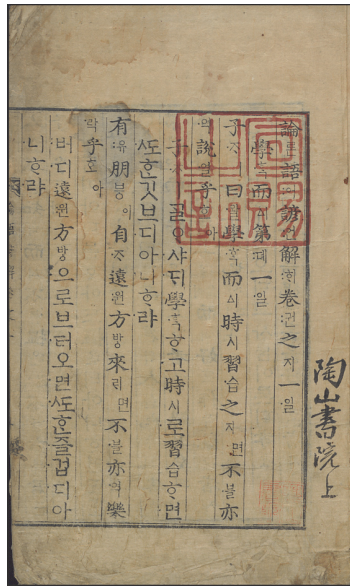 陶山書院上
論론語어諺언解ᄒᆡ卷권之지一일
學ᄒᆞᆨ而ᅀᅵ第뎨一일
子ᄌᆞㅣ曰왈學ᄒᆞᆨ而ᅀᅵ時시習습之지면不블亦
역說열乎호아
子ᄌᆞㅣᄀᆞᆯᄋᆞ샤ᄃᆡ學ᄒᆞᆨᄒᆞ고時시로習습ᄒᆞ면
ᄯᅩᄒᆞᆫ깃브디아니ᄒᆞ랴
有유朋붕이自ᄌᆞ遠원方방來ᄅᆡ면不블亦역樂
락乎호아
버디遠원方방으로브터오면ᄯᅩᄒᆞᆫ즐겁디아
니ᄒᆞ랴